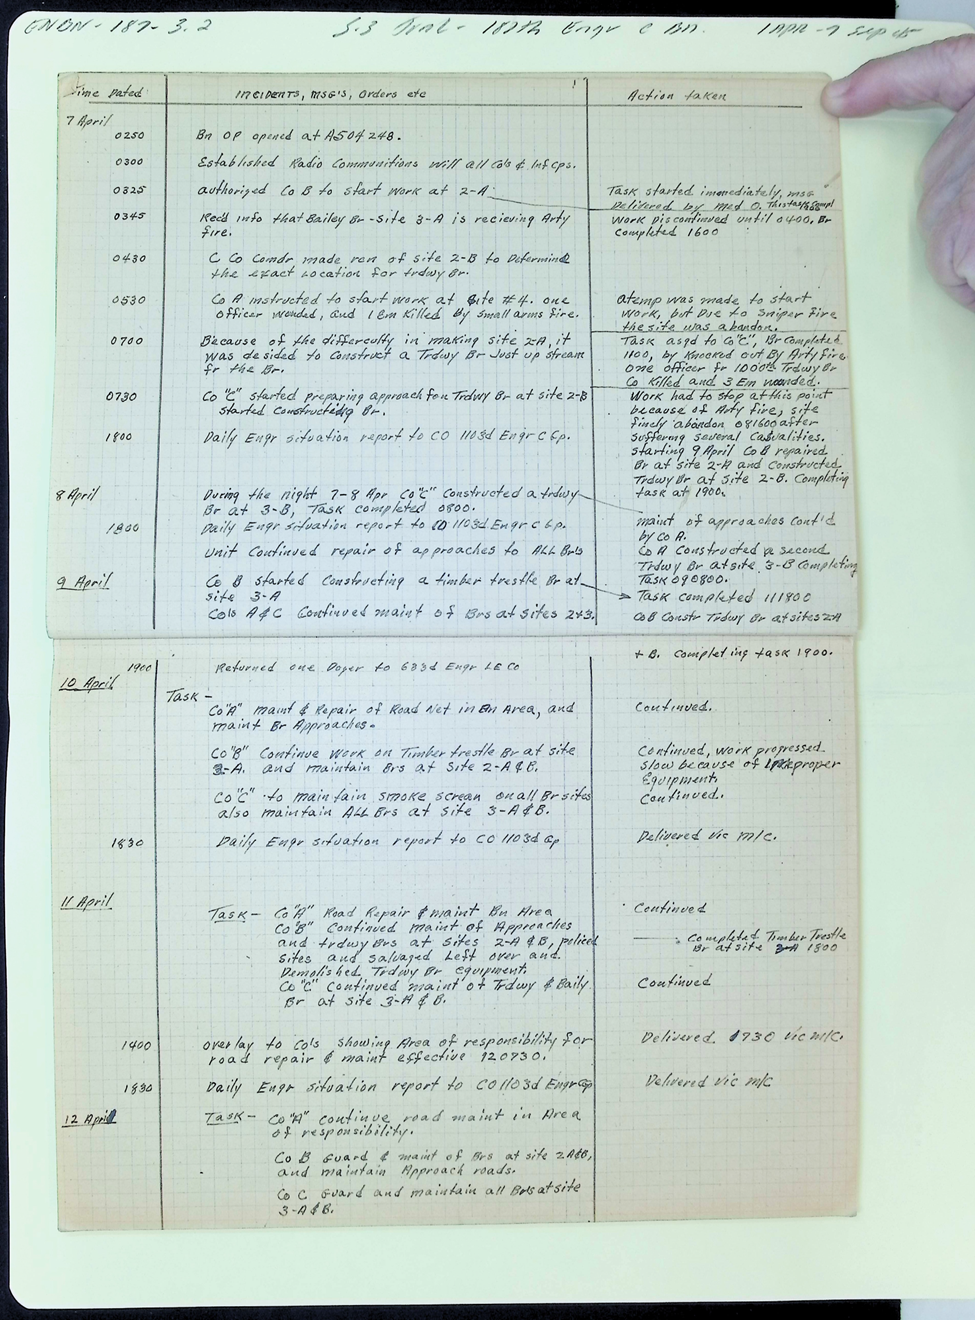 ENBN-187-3.2 S-3 Jrnl - 187th Engr C Bn. 1 Apr - 9 Sep 45
Time Dated INCIDENTS, MSG'S, Orders etc Action taken
7 April
0250 Bn OP opened at A504248.
0300 Established Radio Communitions will all Co's & Inf Cps.
0325 authorized Co B to start work at 2-A. Task started immediately, msg
Delivered by Med O. This task compl
0345 Recd info that Bailey Br - Site 3-A is recieving Arty Work Discontinued until 0400, Br
fire. completed 1600
0430 C Co Comdr made rcn of site 2-B to Determine
the exact Location for trdwy Br.
0530 Co A instructed to start work at Site #4. one atemp was made to start
officer wonded, and 1 Em Killed by small arms fire. work, but Due to Sniper fire
the site was abandon.
0700 Because of the differculty in making site 2-A, it Task asgd to Co "C", Br completed
was desided to Construct a Trdwy Br Just up stream 1100, by Knocked out By Arty fire
fr the Br. one officer fr 1000th Trdwy Br
Co Killed and 3 Em wonded.
0730 Co "C" started preparing approach for Trdwy Br at site 2-B Work had to stop at this point
started Constructing Br. because of Arty fire, site
finely abandon 081600 after
1800 Daily Engr situation report to CO 1103d Engr C Gp. suffering several Casualities.
starting 9 April Co B repaired
Br at site 2-A and Constructed
Trdwy Br at Site 2-B. Completing
8 April During the night 7-8 Apr Co "C" Constructed a trdwy task at 1900.
Br at 3-B, Task completed 0800. maint of approaches Cont'd
1800 Daily Engr situation report to CO 1103d Engr C Gp. by Co A.
Unit Continued repair of approaches to ALL Br's Co A Constructed a second
Trdwy Br at site 3-B Completing
9 April Co B started Constructing a timber trestle Br at Task 090800.
site 3-A Task completed 111800
Co's A & C Continued maint of Brs at sites 2+3. Co B Constr Trdwy Br at sites 2A
+ B. Completing task 1900.
1900 Returned one Dozer to 683d Engr LE Co
10 April
Task -
Co "A" maint & Repair of Road Net in Bn Area, and Continued.
maint Br Approaches.
Co "B" Continue Work on Timber trestle Br at site Continued, work progressed
3-A. and maintain Brs at Site 2-A & B. slow because of improper
Equipment.
Co "C" to maintain smoke screan on all Br sites Continued.
also maintain ALL Brs at Site 3-A & B.
1830 Daily Engr situation report to CO 1103d Gp Delivered Vic m/c.
11 April
Task - Co "A" Road Repair & maint Bn Area Continued
Co "B" Continued maint of Approaches
and trdwy Brs at Sites 2-A & B, policed Completed Timber Trestle
sites and salvaged Left over and Br at site 3-A 1800
Demolished Trdwy Br equipment.
Co "C" Continued maint of Trdwy & Baily Continued
Br at Site 3-A & B.
1400 overlay to Co's showing Area of responsibility for Delivered 1730 Vic m/c.
road repair & maint effective 120730.
1830 Daily Engr situation report to CO 1103d Engr Gp Delivered Vic m/c
12 April Task - Co "A" continue road maint in Area
of responsibility.
Co B Guard & maint of Brs at site 2A&B,
and maintain Approach roads.
Co C Guard and maintain all Brs at site
3-A & B.